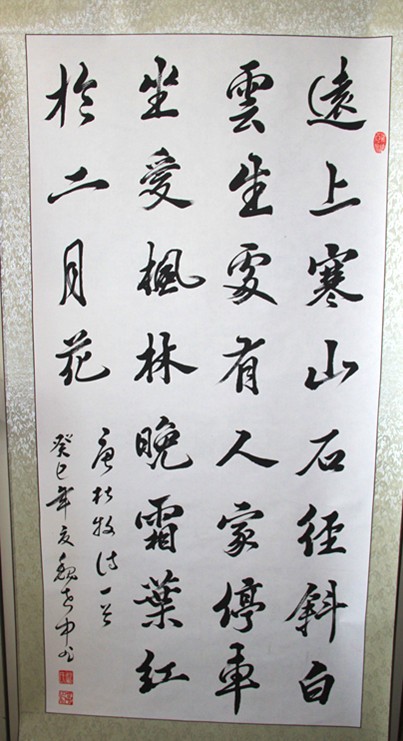 遠上寒山石徑斜白
雲生處有人家停車
坐愛楓林晚霜葉紅
於二月花
唐杜牧诗一首
癸巳年夏魏老中书